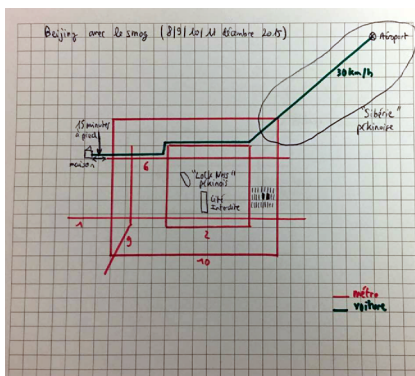 Beijing avec le smog (8/9/10/11 décembre 2015)
Aéroport
30 km/h
"Sibérie"
pékinoise
15 minutes
à pied
maison
6
"Loch Ness"
pékinois
Cité
Interdite
1
9
2
10
métro
voiture